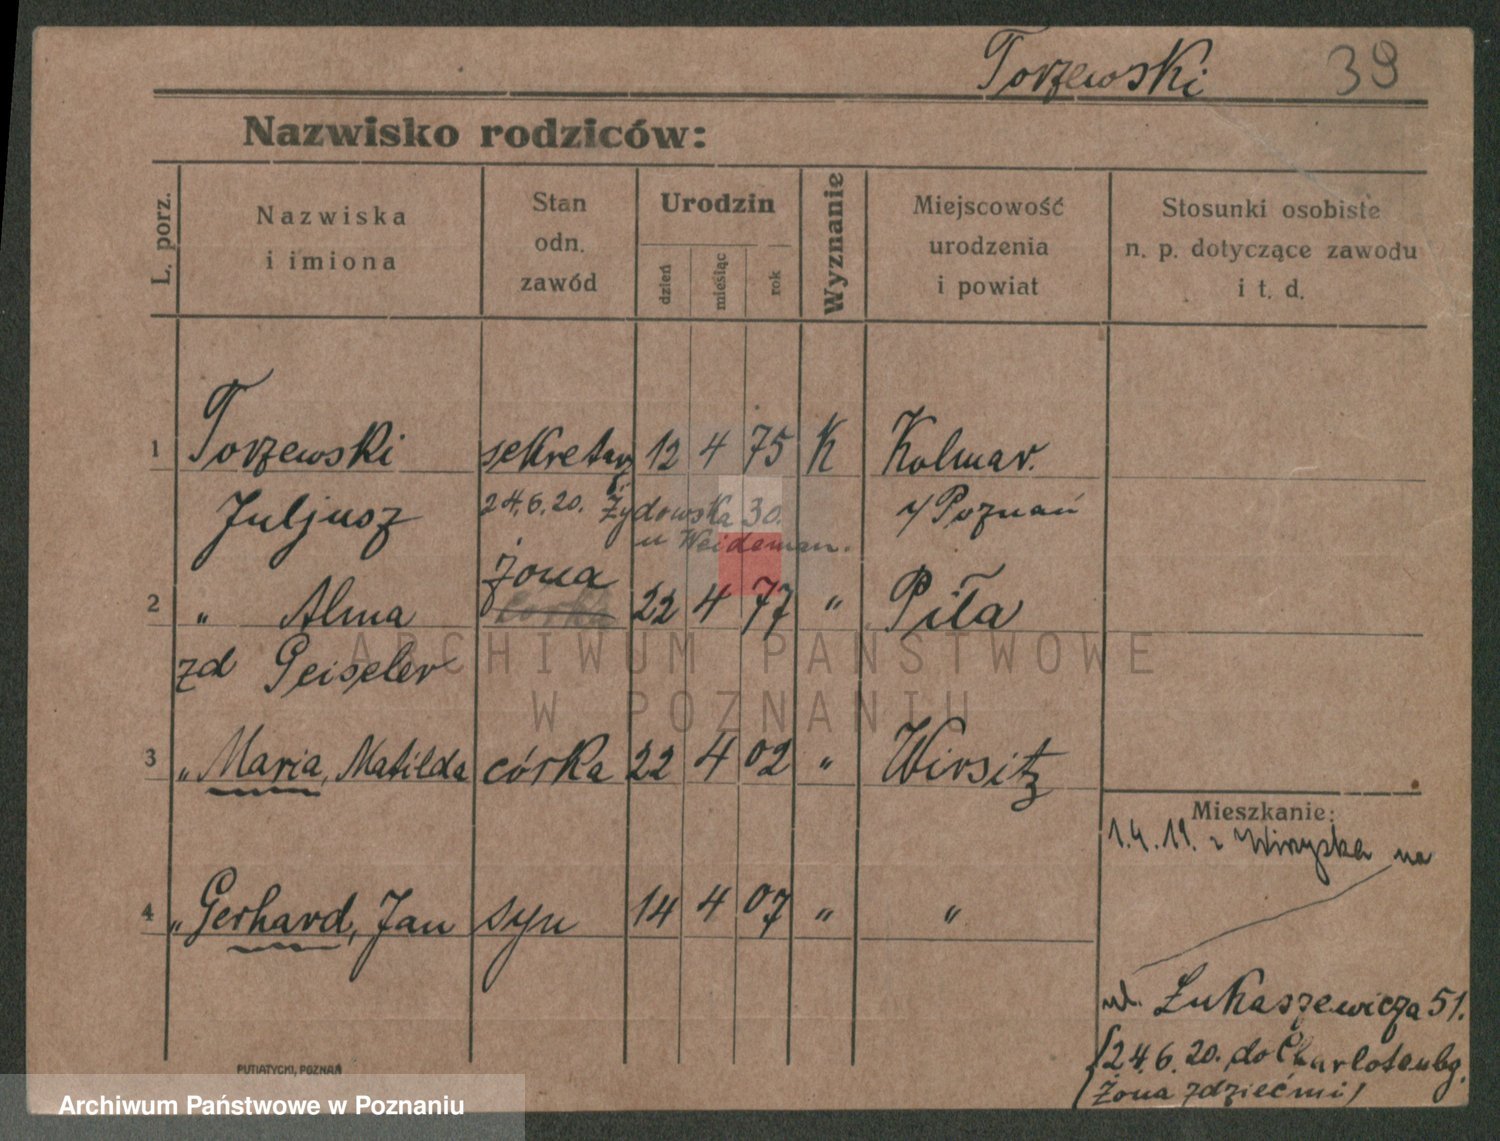 Torzewski 39
Nazwisko rodziców:
L. porz.
Nazwiska
i imiona
Stan
odn.
zawód
Urodzin
dzień
miesiąc
rok
Wyznanie
Miejscowość
urodzenia
i powiat
Stosunki osobiste
n. p. dotyczące zawodu
i t. d.
1 Torzewski sekretarz 12 4 75 K Kolmar.
Juljusz 24.6.20. Żydowska 30. Poznań
u Weideman.
żona
2 " Alma córka 22 4 77 " Piła
zd Geiseler
ARCHIWUM PAŃSTWOWE
W POZNANIU
3 " Maria, Matilda córka 22 4 02 " Wirsitz
Mieszkanie:
1.4.19. z Wirzyska na
4 " Gerhard, Jan syn 14 4 07 " "
ul. Łukaszewicza 51.
(24.6.20. do Charlotenbg.
(Żona z dziećmi)
PUTIATYCKI, POZNAŃ
Archiwum Państwowe w Poznaniu